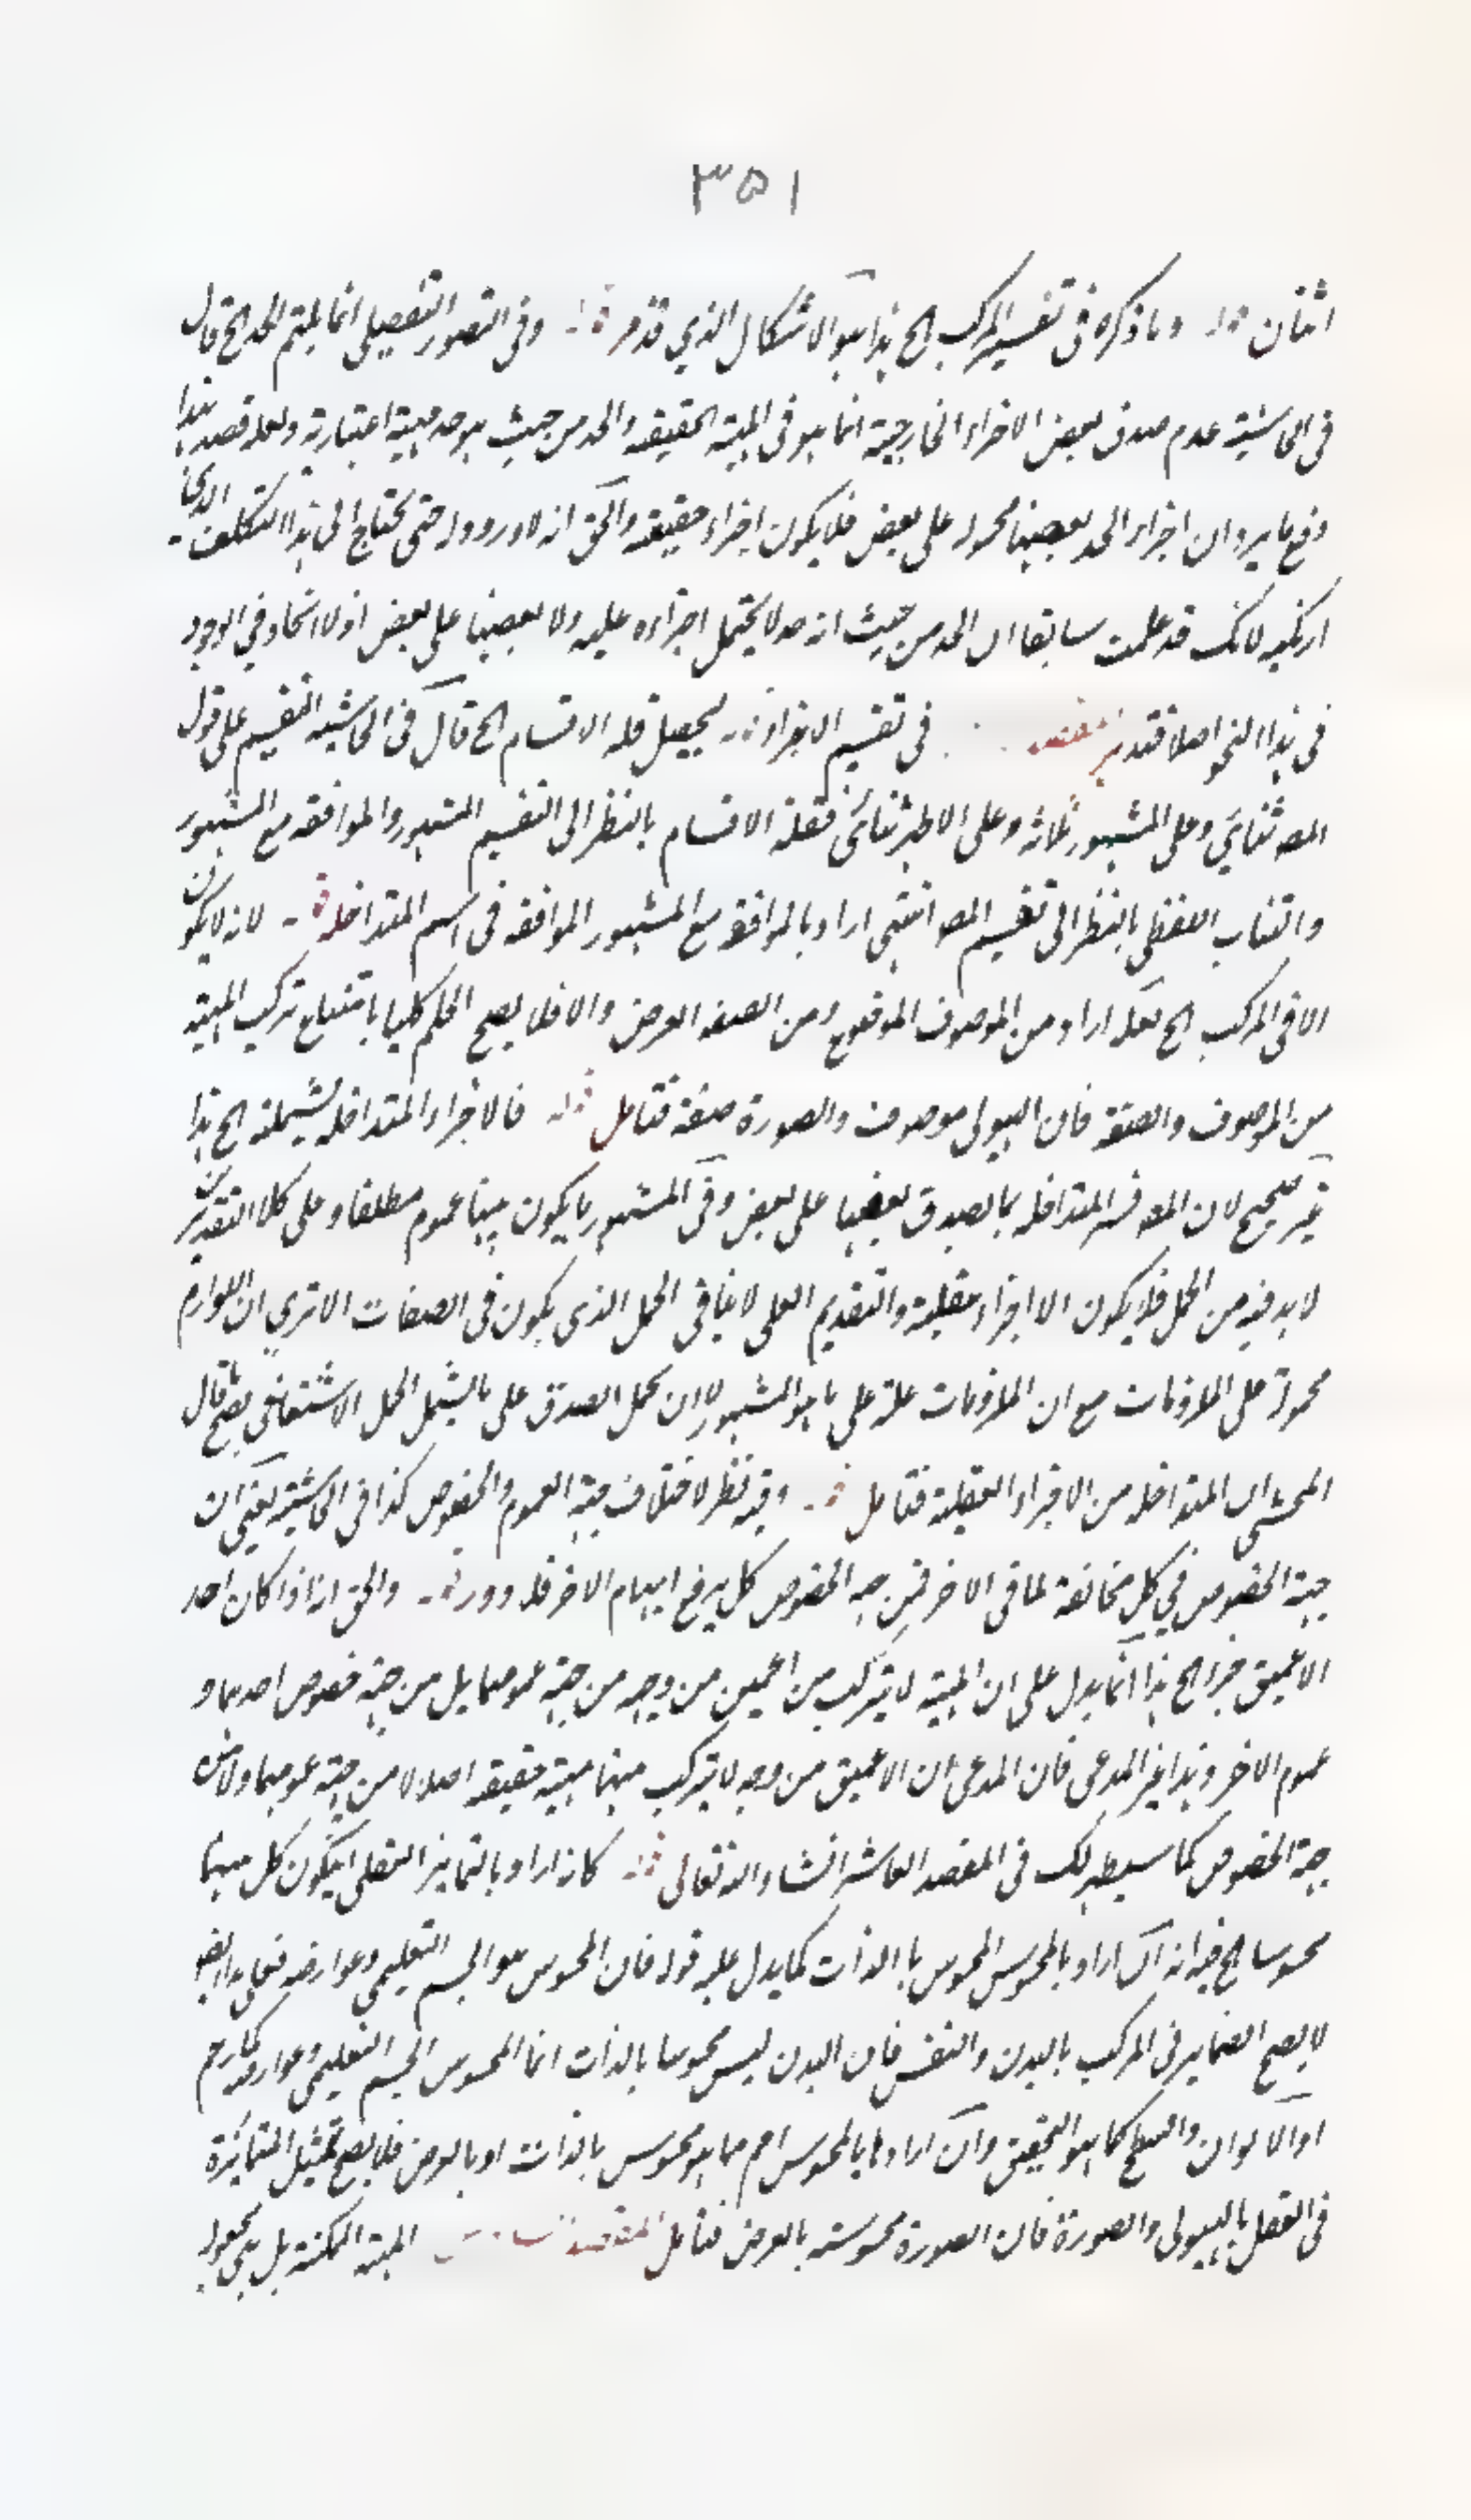 ٣٥١
اثنان قوله وما ذكره في تفسير المركب الخ هذا هو الاشكال الذي قد مر قوله وفي التصور التفصيلي انما يلتم الحد الخ قال
في الحاشية عدم صدق بعض الاجزاء الخارجية انما هو في المهية الحقيقية والحد من حيث هو حد مهية اعتبارية ولعله قصد بهذا
دفع ما يرد ان اجزاء الحد بعضها محمول على بعض فلا يكون اجزاء حقيقة والحق انه لا ورود له حتى يحتاج الى هذا التكلف الذي
ارتكبه لانك قد علمت سابقا ان الحد من حيث انه حد لا يحتمل اجزاءه عليه ولا بعضها على بعض اذ لا اتحاد في الوجود
في هذا النحو اصلا فتدبر مقصد في تقسيم الاجزاء قوله ليحصل قلة الاقسام الخ قال في الحاشية التقسيم على قول
المص ثنائي وعلى المشهور ثلاثة وعلى الاظهر ثنائي فقلة الاقسام بالنظر الى التقسيم المشهور والموافقة مع المشهور
والتناسب اللفظي بالنظر الى تقسيم المص انتهى اراد بالموافقة مع المشهور الموافقة في اسم المتداخلة قوله لانه لا يكون
الا في المركب الخ لعله اراد من الموصوف الموضوع ومن الصفة العرض والا فلا يصح الحكم كليا بامتناع تركيب المهية
من الموصوف والصفة فان الهيولى موصوف والصورة صفة فتامل قوله فالاجزاء المتداخلة يشمله الخ هذا
غير صحيح لان المص فسر المتداخلة بما يصدق بعضها على بعض وفي المشهور ما يكون بينها عموم مطلقا وعلى كلا التقديرين
لا بد فيه من الحمل فلا يكون الا اجزاء عقلية والتقديم العلي لا ينافي الحمل الذي يكون في الصفات الا ترى ان اللوازم
محمولة على الملزومات مع ان الملزومات علة على ما هو المشهور الا ان يحمل الصدق على ما يشمل الحمل الاشتقاقي
المحشي ان المتداخلة من الاجزاء العقلية فتامل قوله وفيه نظر لاختلاف جهة العموم والخصوص كذا في الحاشية يعني ان
جهة الخصوص في كل مخالفة لما في الاخر فمن جهة الخصوص كل يرفع ابهام الاخر فلا دور قوله والحق انه اذا كان احد
الاعمين جزء الخ هذا انما يدل على ان المهية لا يتركب من اعمين من وجه من جهة عمومهما بل من جهة خصوص احدهما و
عموم الاخر وهذا غير المدعى فان المدعى ان الاعمين من وجه لا يتركب منهما مهية حقيقة اصلا لا من جهة عمومهما ولا من
جهة الخصوص كما سيظهر لك في المقصد العاشر انشاء الله تعالى قوله كانه اراد بالتمايز العقلي ان يكون كل منهما
محسوسا الخ فيه انه ان اراد بالمحسوس المحسوس با الذات كما يدل عليه قوله فان المحسوس هو الجسم التعليمي وعوارضه فعلى هذا ايضا
لا يصح التمايز في المركب بالبدن والنفس فان البدن ليس محسوسا بالذات انما المحسوس الجسم التعليمي وعوارضه
او الالوان والسطح كما هو التحقيق وان اراد ما بالمحسوس اعم مما هو محسوس بالذات او بالعرض فلا يصح تمثيل المتمايزة
في العقل بالهيولى والصورة فان الصورة محسوسة بالعرض فتامل المقصد المهية الممكنة بل هي مجعولة